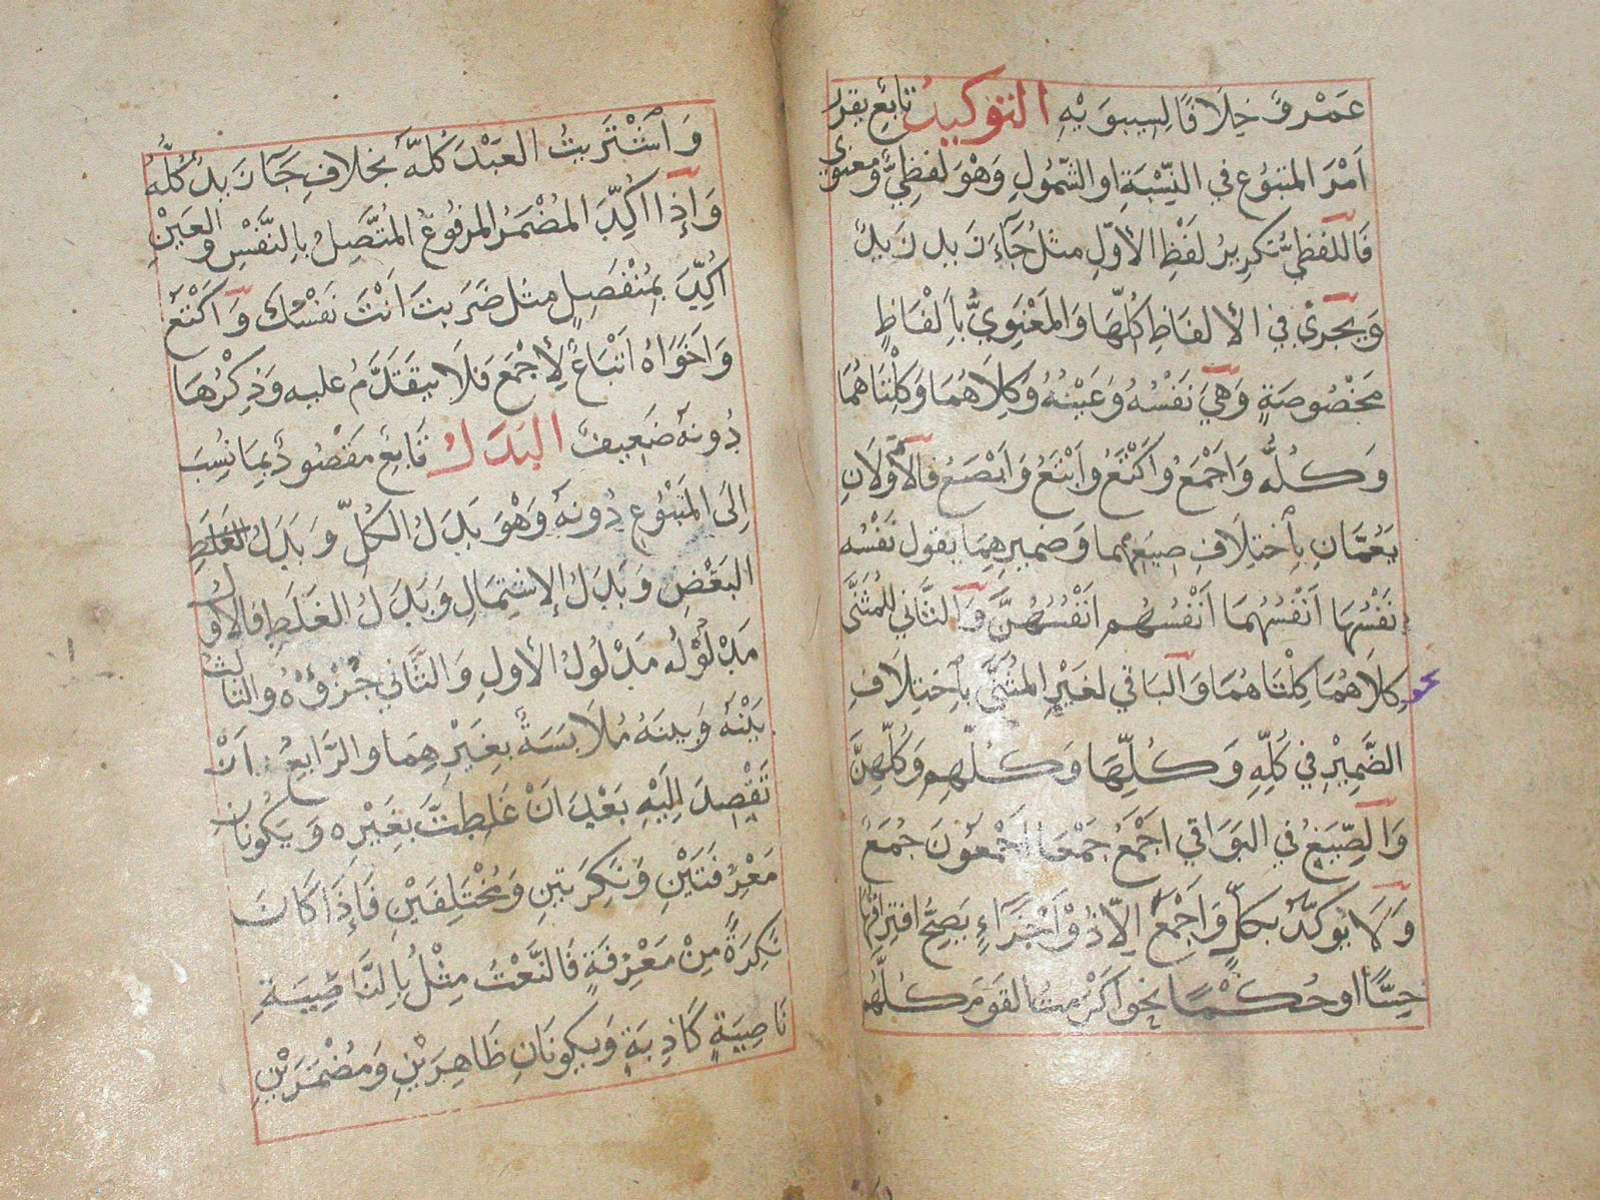 عَمْرٍو خِلَافًا لِسِيبَوَيْهِ التوكيدُ تابِعٌ يقرر
اَمْرَ المتبوُعِ في النِّسْبَةِ او الشّمُولِ وَهْوَ لَفظِيٌّ ومعنوى
فَاللَفظِيُّ تكرِيرُ لَفْظِ الأوّلِ مثلُ جَآءَ زَيدٌ زَيدٌ
وَيجرىْ في الألفاظِ كُلِّهَا وَالمَعْنَوِيُّ بِاَلْفَاظٍ
مَخْصُوصَةٍ وَهِيَ نَفْسُهُ وَعَيْنُهُ وَكِلَاهُمَا وَكِلْتَاهُمَا
وَكُلُّه وَاَجْمَعُ وَاَكْتَعُ وَاَبْتَعُ وَاَبْصَعُ فَالأَوَّلَانِ
يَعُمَّانِ بِاخْتِلَافِ صِيَغِهِما وَضميرِهِمَا يقول نَفْسُه
نَفْسُهَا اَنْفُسُهُمَا اَنْفُسُهُم اَنْفُسُهُنَّ وَالثَّاني لِلمُثَنَّى
كِلَاهُمَا كِلْتَاهُمَا وَالبَاقي لغَيْرِ المثَنَّى بِاخْتِلَافِ
نحو
الضَّمِيْرِ في كُلِّهِ وَكُلِّهَا وَكُلِّهِم وَكُلِّهِنَّ
وَالصِّيَغِ في البَوَاقي اَجْمَعُ جَمْعَاءُ اَجْمعُونَ جُمَعُ
وَلَا يُوَكَّدُ بِكلٍّ وَاَجْمَعَ اِلَّا ذُوْ اَجْزَآءٍ يَصِحُّ افتِراقُهَا
حِسًّا اوحُكْمًا نحو اَكْرَمتُ القَوْمَ كُلَّهُم
وَاشْتَرَيتُ العَبْدَ كُلَّهُ بخلافِ جَآءَ زَيدٌ كُلُّهُ
وَإِذَا اُكِّدَ المُضْمَرُ المرفُوعُ المُتَّصِلُ بِالنَّفْسِ وَالعَيْنِ
اُكِّدَ بمُنْفَصِلٍ مثل ضَرَبتَ اَنْتَ نَفْسُكَ وَاَكْتَعُ
وَاَخَوَاهُ اَتْبَاعٌ لِأَجْمَعَ فَلَا يَتَقَدَّمُ عليه وَذِكْرُهَا
دُونَهُ ضَعِيفٌ البَدَلُ تَابِعٌ مَقْصُودٌ بِمَا نُسِبَ
اِلَى المَتبُوعِ دُونَهُ وَهْوَ بَدَلُ الكُلِّ وَبَدَلُ الغَلَطِ
البَعْضِ وَبَدَلُ الإشتِمَالِ وَبَدَلُ الغَلَطِ فَالأوّل
مَدْلُوْلُه مَدْلُولُ الأولِ وَالثَّاني جُزْؤُهُ والثالثُ
بَيْنَهُ وَبَينَهُ مُلَابَسَةٌ بِغَيْرِهِمَا والرَّابِعُ اَنْ
تَقْصِدَ اِلَيْهِ بَعْدَ اَنْ غَلِطْتَ بِغَيْرِه وَيَكُونانِ
مَعْرِفَتَيْنِ وَنَكِرَتينِ وَمُخْتَلِفَيْنِ فَإِذَا كَانَ
نَكِرَةً مِنْ مَعْرِفَةٍ فَالنَّعْتُ مِثْلُ بِالنَّاصِيَةِ
نَاصِيَةٍ كَاذِبَةٍ وَيكُونَانِ ظَاهِرَيْنِ وَمُضْمَرَيْنِ